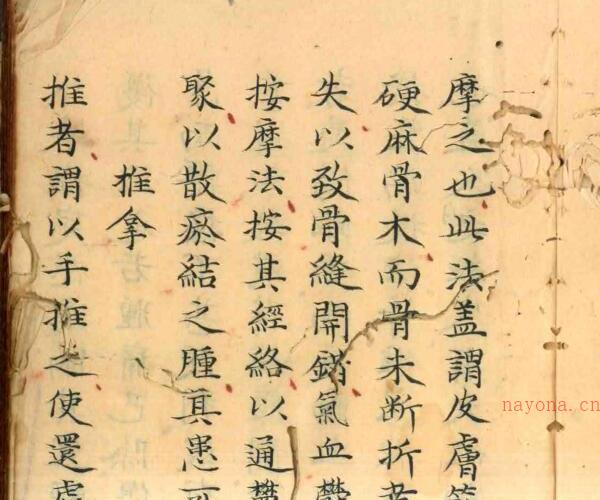 摩之也此法蓋謂皮膚
硬麻骨木而骨未断折者
失以致骨縫開錯氣血欝
按摩法按其經絡以通欝
聚以散瘀結之腫其患可
推拿
推者謂以手推之使還處
nayona.cn